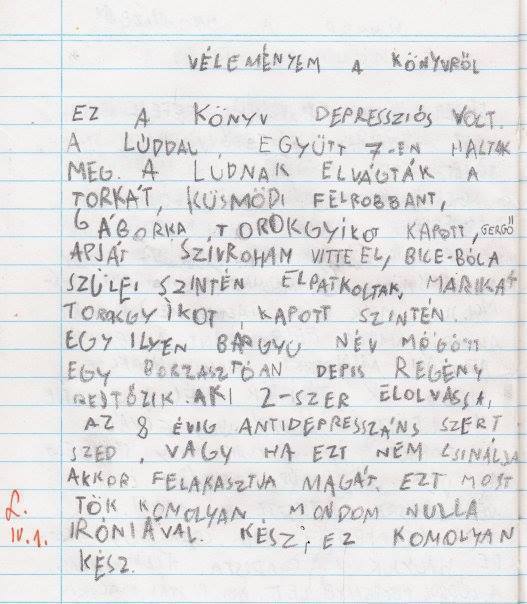 VÉLEMÉNYEM A KÖNYVRŐL
EZ A KÖNYV DEPRESSZIÓS VOLT.
A LÚDDAL, EGYÜTT 7-EN HALTAK
MEG. A LÚDNAK ELVÁGTÁK A
TORKÁT, KÜSMÖDI FELROBBANT,
GÁBORKA TOROKGYÍKOT KAPOTT, GERGŐ
APJÁT SZIVROHAM VITTE EL, BICE-BÓCA
SZÜLEI SZINTÉN ELPATKOLTAK, MARIKA
TOROKGYÍKOT, KAPOTT SZINTÉN
EGY ILYEN BÁRGYU NÉV MÖGÖTT
EGY BORZASZTÓAN DEPIS REGÉNY
REJTŐZIK. AKI 2-SZER ELOLVASSA,
AZ 8 ÉVIG ANTIDEPRESSZÁNS SZERT
SZED, VAGY HA EZT NEM CSINÁLJA
AKKOR FELAKASZTJA MAGÁT. EZT MOST
TÖK KOMOLYAN MONDOM NULLA
IRÓNIÁVAL. KÉSZ, EZ KOMOLYAN
KÉSZ.
L.
IV.1.